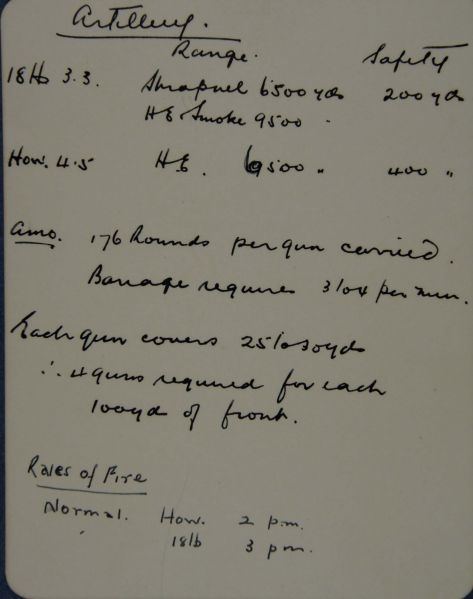 Artillery.
Range. Safety
18lb 3.3. Shrapnel 6500 yds 200 yds
HE Smoke 9500 "
How. 4.5 H.E. 6500 " 400 "
Amo. 176 Rounds per gun carried.
Barrage requires 3/04 per min.
Each gun covers 25 to 30 yds
∴ 4 guns required for each
100yd of front.
Rates of Fire
Normal. How. 2 p.m.
18lb 3 p.m.